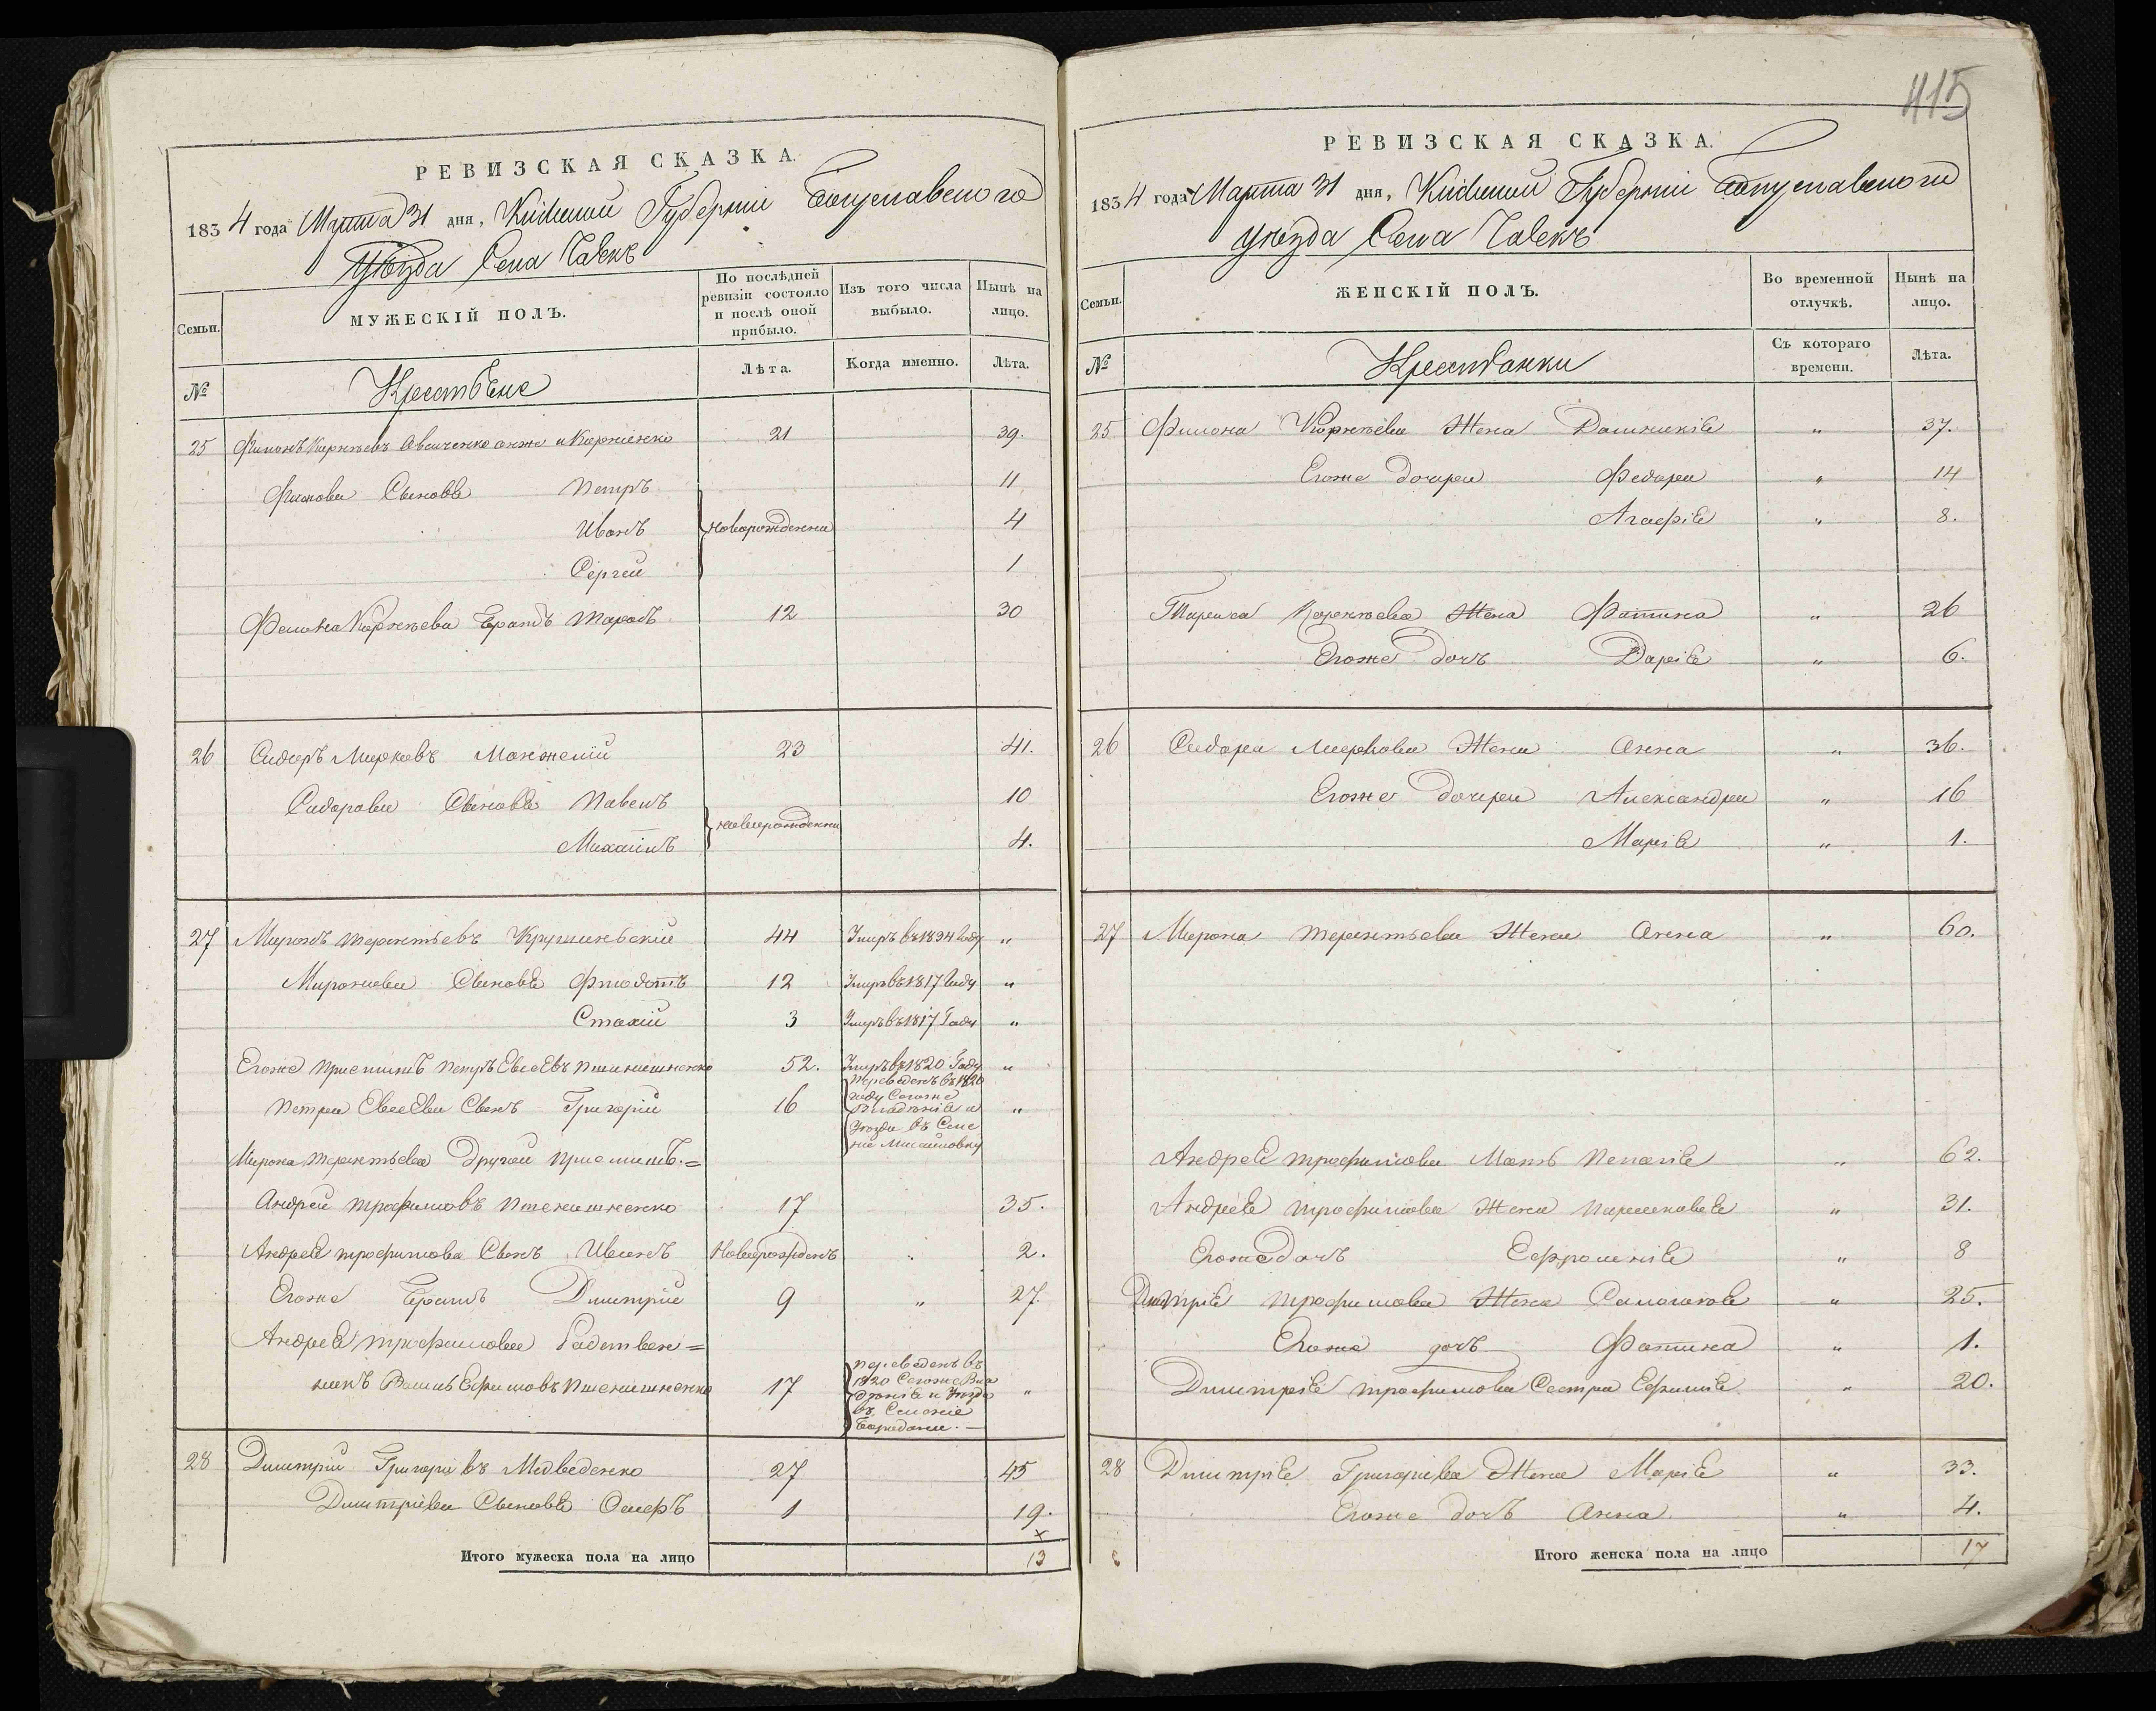 415
РЕВИЗСКАЯ СКАЗКА.
1834 года Марта 31 дня, Кіевской Губерніи Богуславского
Уѣзда Села
Семьи.
МУЖЕСКІЙ ПОЛЪ.
По послѣдней ревизіи состояло и послѣ оной прибыло.
Изъ того числа выбыло.
Нынѣ на лицо.
№
Крестьяне
Лѣта.
Когда именно.
Лѣта.
25 Филонъ Корнѣевъ онже и Корніенко 21 39.
Филонова Сыновья Петръ 11
Иванъ новорожденна 4
Сергей 1
Филона Корнѣева Братъ Тарасъ 12 30
26 Сидоръ Марковъ Манжелій 23 41.
Сидоровы Сыновья Павелъ 10
новорожденни
Михаилъ 4.
27 Миронъ Терентьевъ 44 Умръ въ 1834 Году "
Мироновы Сыновья Фіодотъ 12 Умръ въ 1817 Году "
Стахій 3 Умръ въ 1817 Году "
Егоже приемишъ Петръ Евсеевъ Пшенишненко 52. Умръ въ 1820 Году "
Петра Евсеева Сынъ Григорій 16 Переведенъ въ 1820 году Сегоже Владѣнія и Уѣзда въ Селе "
Мирона Терентьева Другой приемишъ.=
Андрей Трофимовъ Пшенишненко 17 35.
Андрея Трофимова Сынъ Иванъ Новорожденъ " 2.
Егоже Братъ Димитрій 9 " 27.
Андрея Трофимова Родствен=
никъ Василь Ефимовъ Пшенишненко 17 переведенъ въ 1820 Сегоже Владѣнія и Уѣзда въ Селеніе "
28 Димитрій Григоріевъ Медведенко 27 45
Димитріева Сыновья 1 19.
x
Итого мужеска пола на лицо 13
РЕВИЗСКАЯ СКАЗКА.
1834 года Марта 31 дня, Кіевской Губерніи Богуславского
Уѣзда Села
Семьи.
ЖЕНСКІЙ ПОЛЪ.
Во временной отлучкѣ.
Нынѣ на лицо.
№
Крестьянки
Съ котораго времени.
Лѣта.
25 Филона Корнѣева Жена Домникія " 37.
Егоже дочери Федора " 14
Агафія " 8.
Тараса Корнѣева Жена Фотина " 26
Егоже дочь Дарія " 6.
26 Сидора Маркова Жена Анна " 36.
Егоже дочери Александра " 16
Марія " 1.
27 Мирона Терентьева Жена Анна " 60.
Андрея Трофимова Мать Пелагія " 62.
Андрея Трофимова Жена Парасковея " 31.
Егоже дочь Ефросинія " 8
Дмитрія Трофимова Жена Саломонія " 25.
Егоже дочь Фотина " 1.
Димитрія Трофимова Сестра Ефимія " 20.
28 Димитрія Григоріева Жена Марія " 33.
Егоже дочь Анна " 4.
Итого женска пола на лицо 17